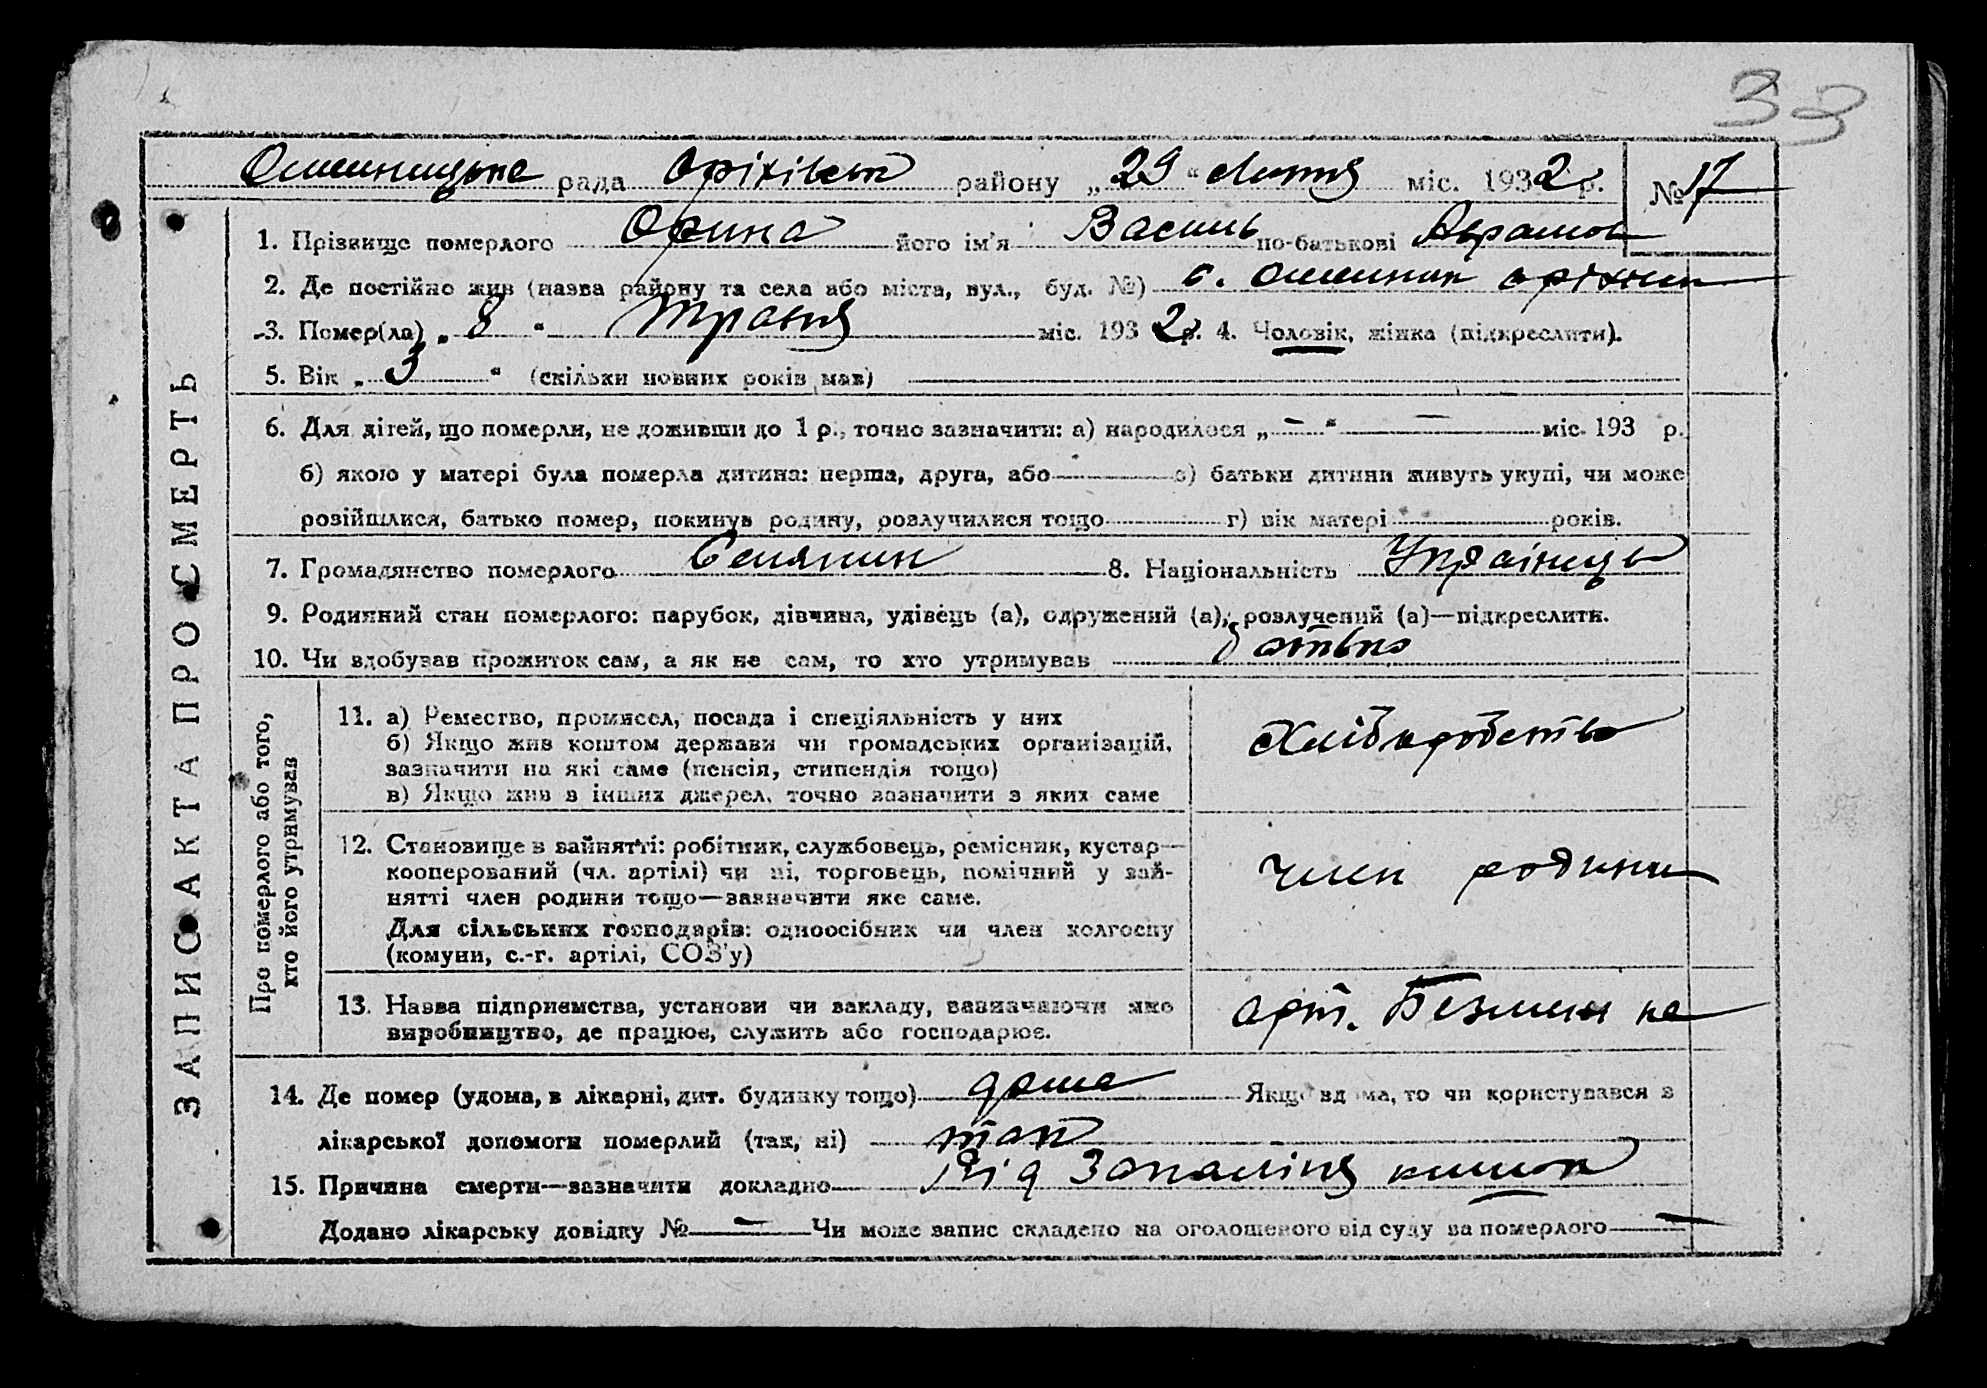 33
рада Оріхівськ району „29“ Липня міс. 1932 р. № 17
ЗАПИС АКТА ПРО СМЕРТЬ
1. Прізвище померлого його ім'я Василь по-батькові Аврамов
2. Де постійно жив (назва району та села або міста, вул., буд. №) с.
3. Помер(ла) „8“ Травня міс. 1932р. 4. Чоловік, жінка (підкреслити).
5. Вік „3“ (скільки повних років мав)
6. Для дітей, що померли, не доживши до 1 р., точно зазначити: а) народилося „—“ — міс. 193 р.
б) якою у матері була померла дитина: перша, друга, або в) батьки дитини живуть укупі, чи може
розійшлися, батько помер, покинув родину, розлучилися тощо г) вік матері років.
7. Громадянство померлого Селянин 8. Національність Українець
9. Родинний стан померлого: парубок, дівчина, удівець (а), одружений (а), розлучений (а)—підкреслити.
10. Чи здобував прожиток сам, а як не сам, то хто утримував батько
Про померлого або того,
хто його утримував
11. а) Ремество, промисел, посада і спеціяльність у них
б) Якщо жив коштом держави чи громадських організацій,
зазначити на які саме (пенсія, стипендія тощо)
в) Якщо жив з інших джерел, точно зазначити з яких саме
Хліборобство
12. Становище в зайнятті: робітник, службовець, ремісник, кустар—
кооперований (чл. артілі) чи ні, торговець, помічний у зай-
нятті член родини тощо—зазначити яке саме.
Для сільських господарів: одноосібник чи член колгоспу
(комуни, с.-г. артілі, СОЗ'у)
член родини
13. Назва підприємства, установи чи закладу, зазначаючи яке
виробництво, де працює, служить або господарює.
арт.
14. Де помер (удома, в лікарні, дит. будинку тощо) дома Якщо вдома, то чи користувався з
лікарської допомоги померлий (так, ні) так
15. Причина смерти—зазначити докладно Від Запаління кишок
Додано лікарську довідку № — Чи може запис складено на оголошеного від суду за померлого —